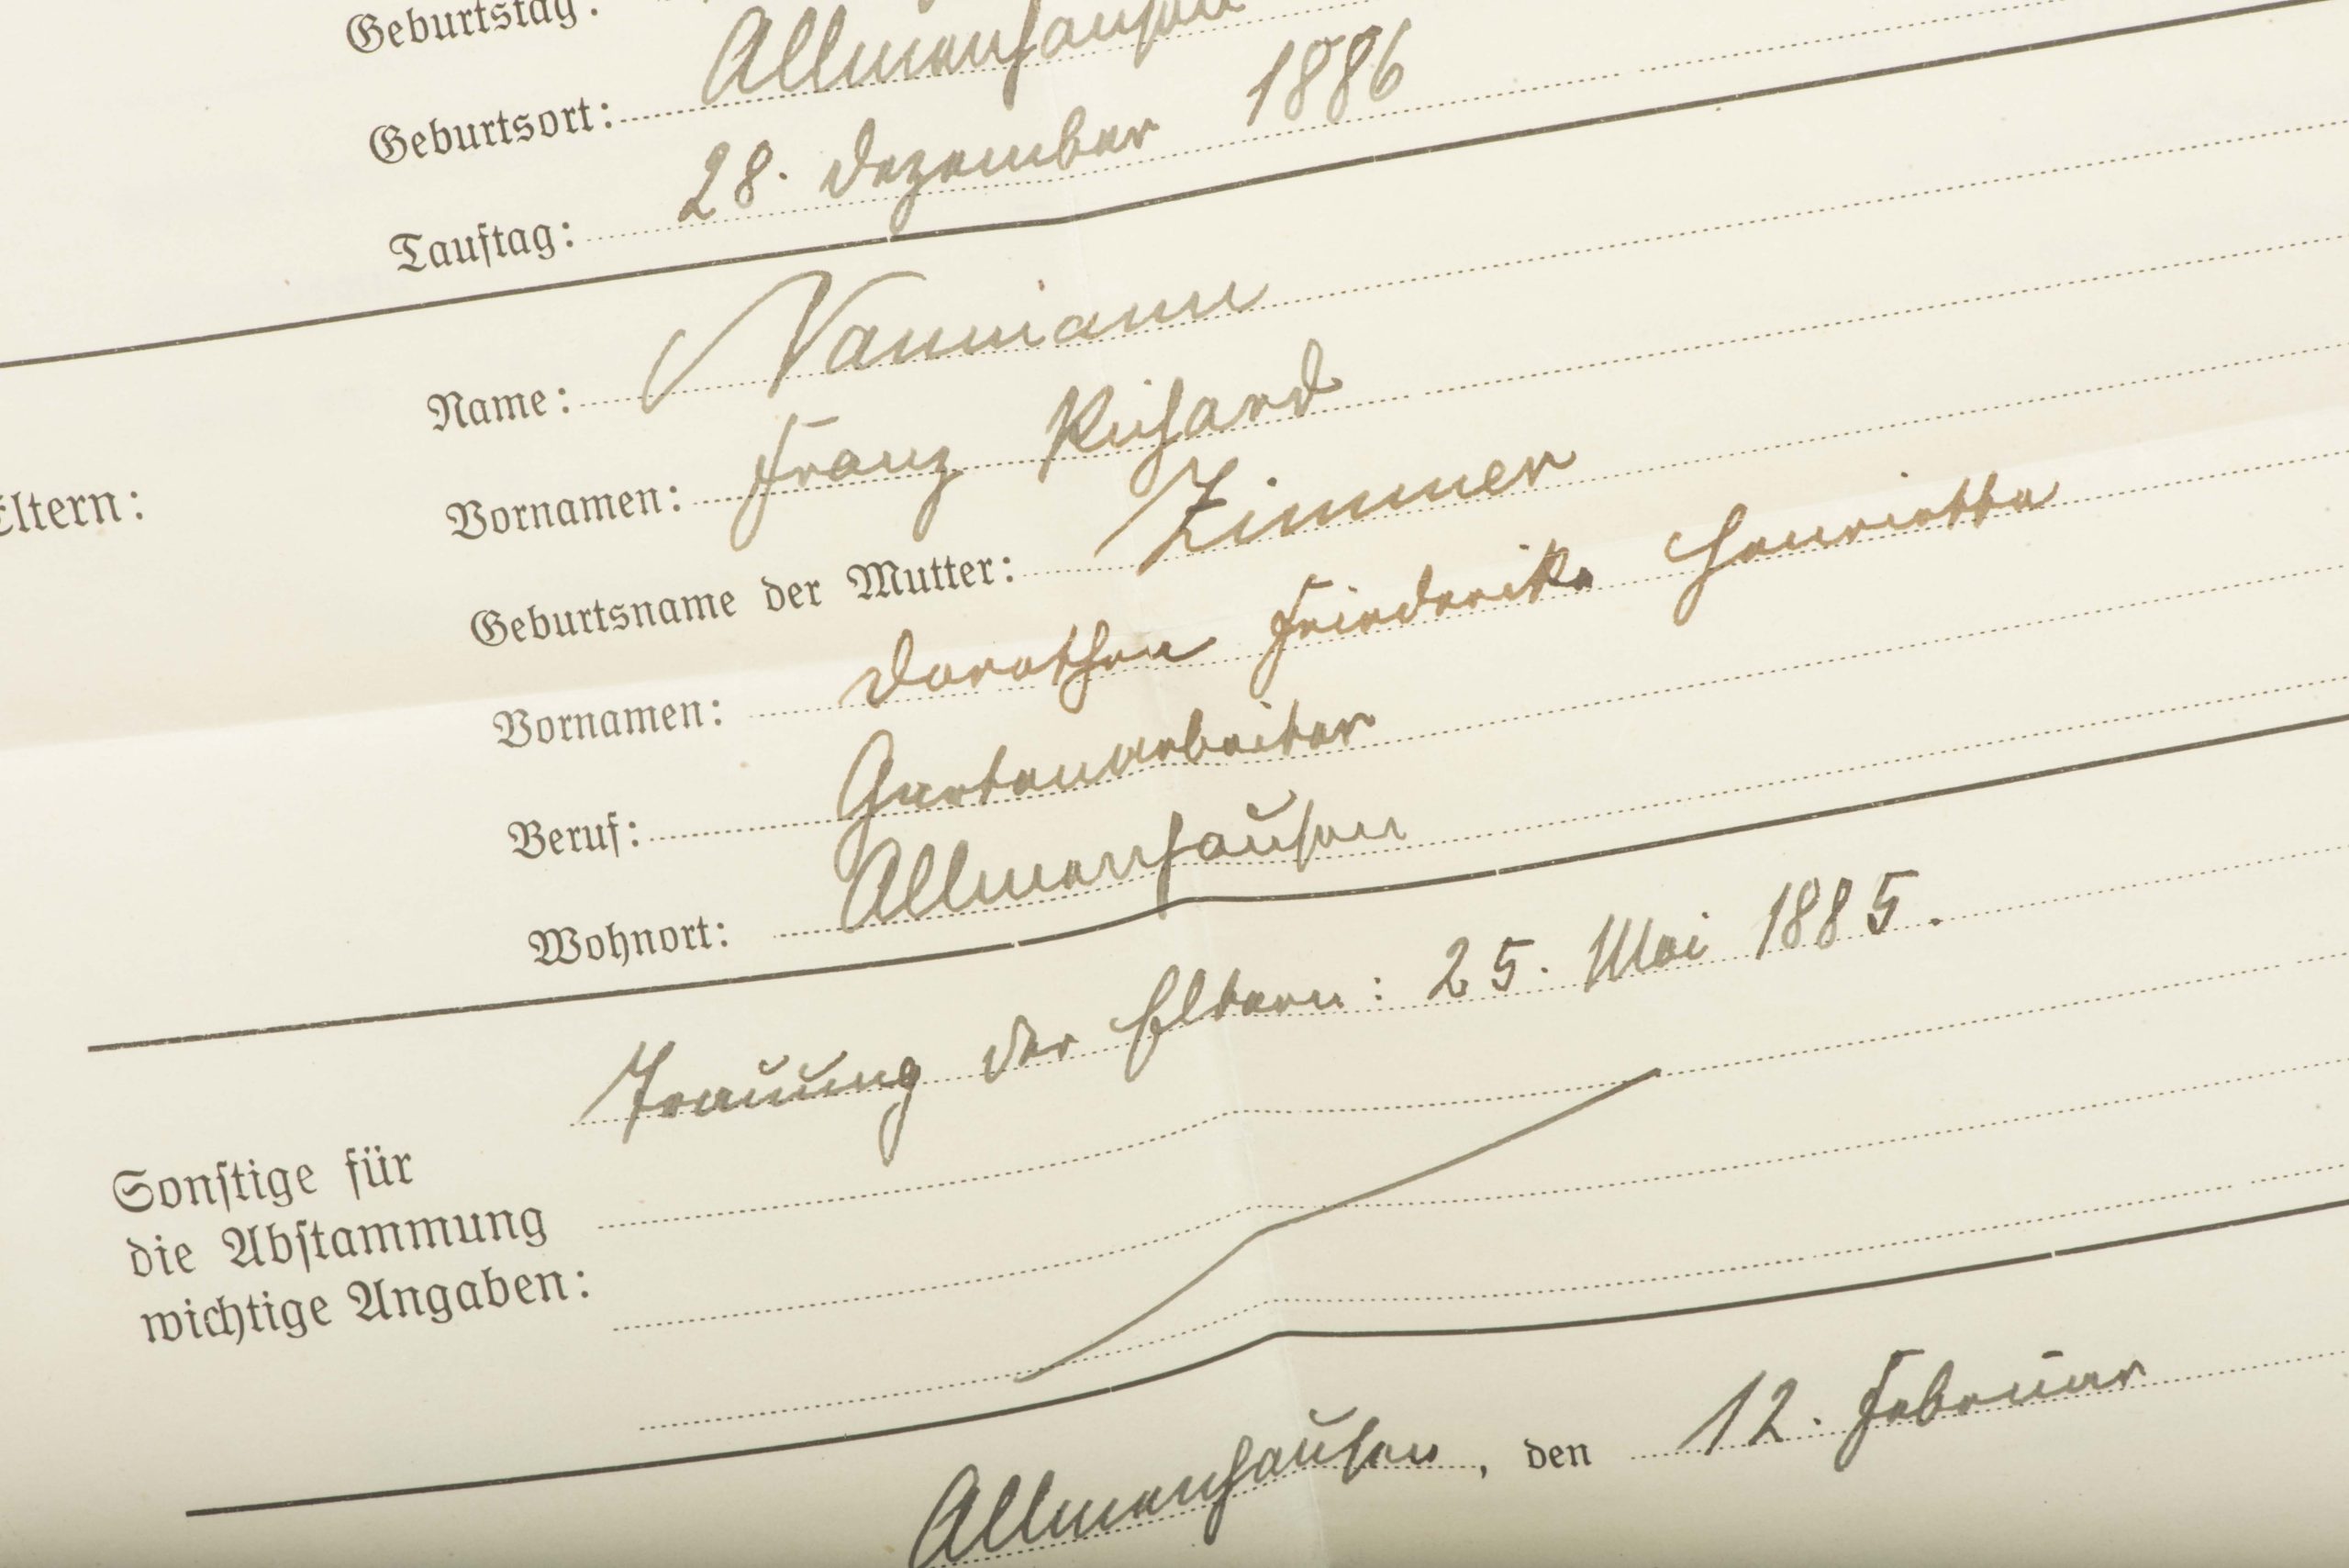 Geburtstag:
Geburtsort: Allmenhausen
Tauftag: 28. Dezember 1886
Eltern:
Name: Naumann
Vornamen: Franz Richard
Geburtsname der Mutter: Zimmer
Vornamen: Dorothea Friederike Henriette
Beruf: Gartenarbeiter
Wohnort: Allmenhausen
Trauung der Eltern: 25. Mai 1885.
Sonstige für
die Abstammung
wichtige Angaben:
Allmenhausen, den 12. Februar